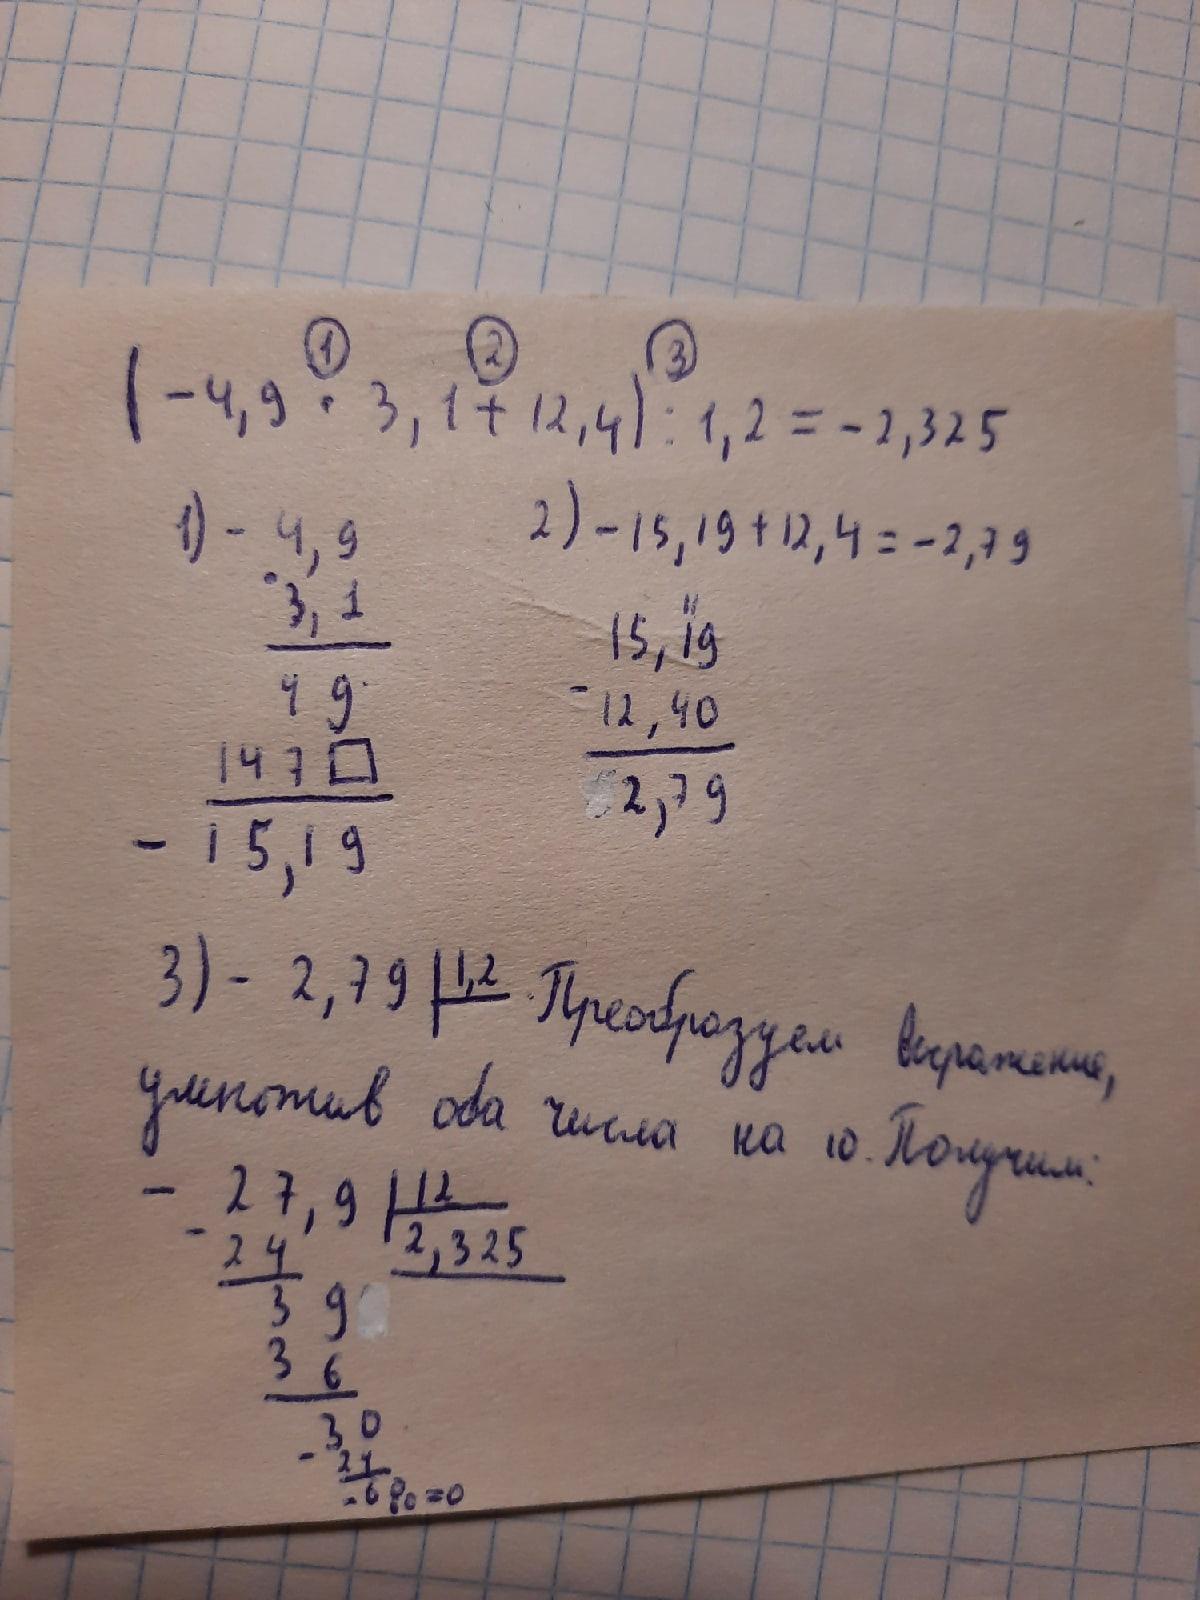 ① ② ③
(-4,9 · 3,1 + 12,4) : 1,2 = -2,325
1) - 4,9
· 3,1
49
147□
- 15,19
2) -15,19 + 12,4 = -2,79
11
15,19
- 12,40
2,79
3) - 2,79 | 1,2 . Преобразуем выражение,
умножив оба числа на 10. Получим:
- 27,9 | 12
- 24 2,325
39
36
30
- 24